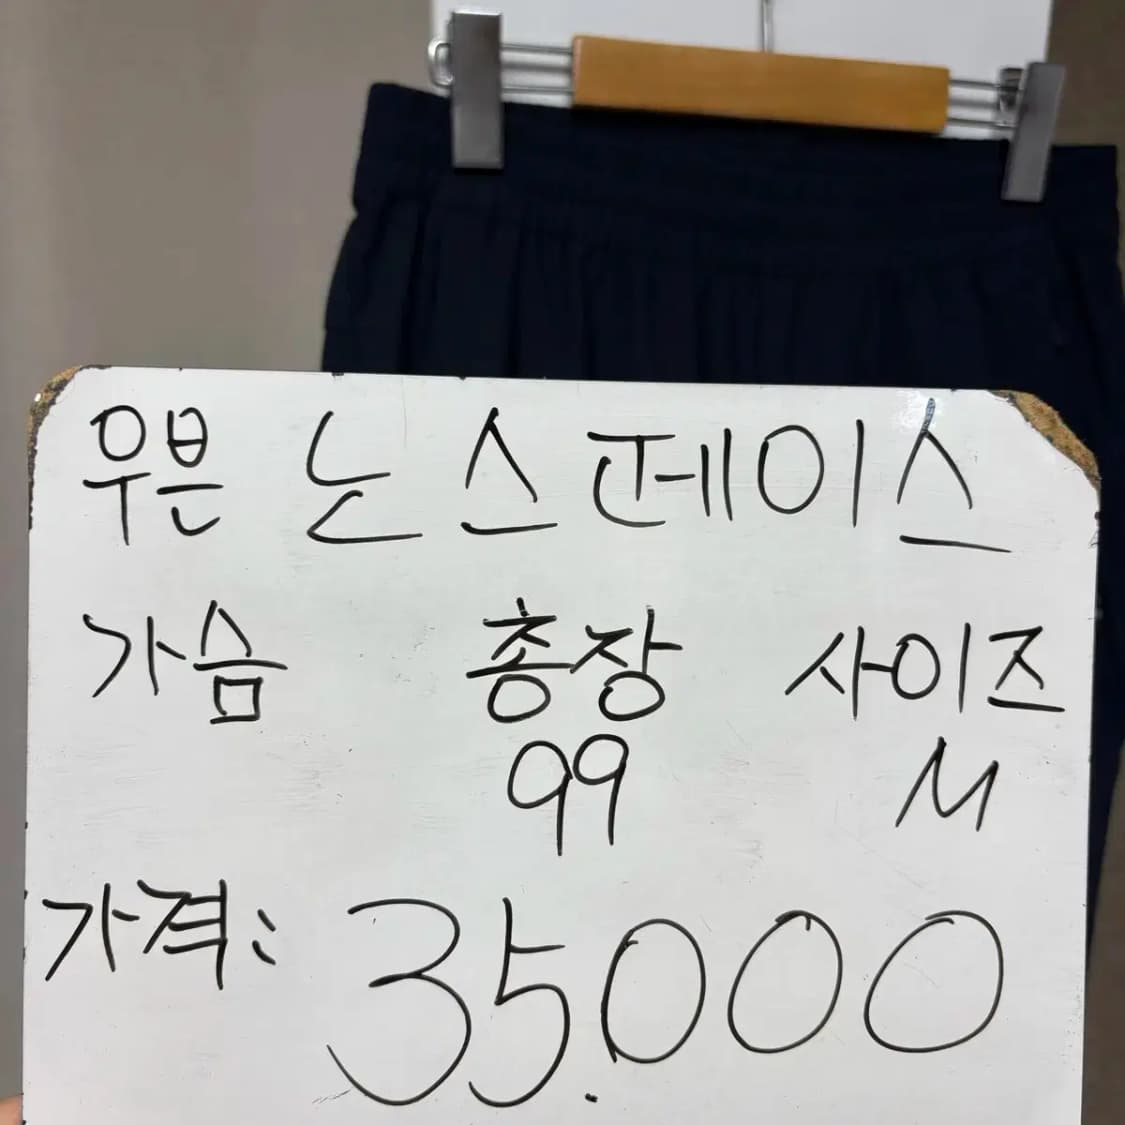 우븐 논스페이스
가슴 총장 사이즈
99 M
가격: 35.000